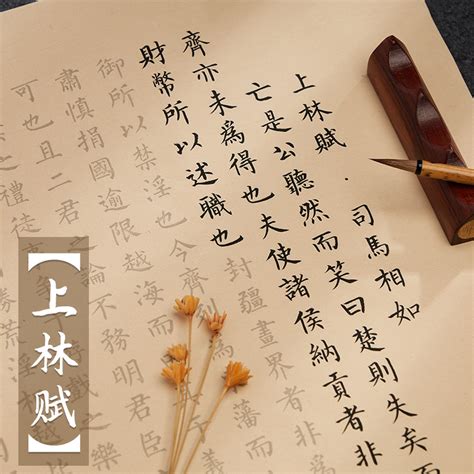 上林賦·司馬相如
亡是公聽然而笑曰楚則失矣
齊亦未爲得也夫使諸侯納貢者非
財幣所以述職也封疆畫界
御所以禁淫也今齊藩而
肅慎捐國逾限越海而
可也且二君之論不務明君臣
禮徒
勝荒淫
【上林赋】